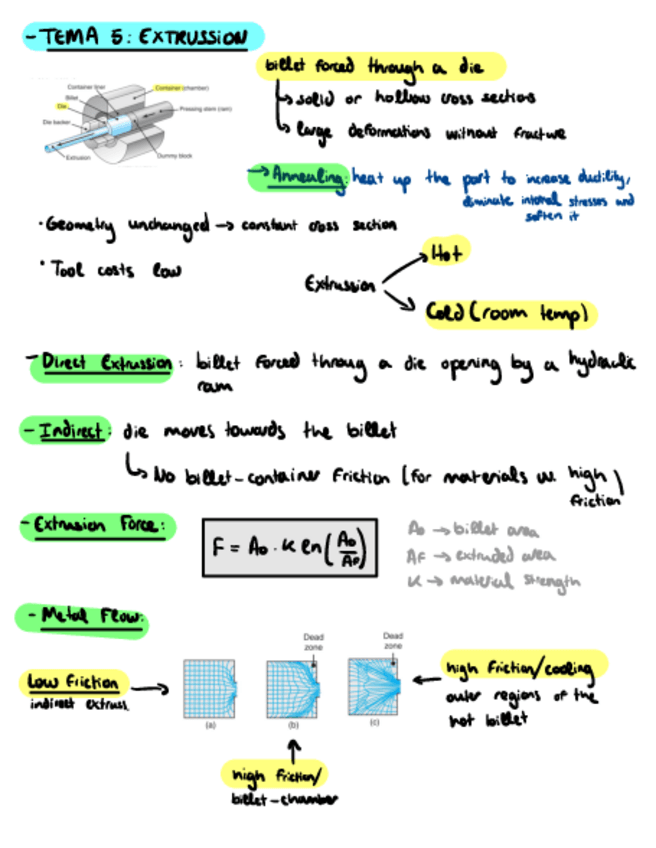 - TEMA 5: EXTRUSSION
billet forced through a die
↳ solid or hollow cross sections
↳ large deformations without fracture
Container liner
Container (chamber)
Billet
Die
Pressing stem (ram)
Die backer
Extrusion
Dummy block
→ Annealing: heat up the part to increase ductility,
diminate internal stresses and
soften it
· Geometry unchanged → constant cross section
· Tool costs low
Extrussion
Hot
Cold (room temp)
- Direct Extrussion: billet forced throug a die opening by a hydraulic
ram
- Indirect: die moves towards the billet
↳ No billet-container friction (for materials w. high
friction)
- Extrusion Force:
F = A₀ · K ln(A₀/AF)
A₀ → billet area
AF → extruded area
K → material strength
- Metal Flow:
Dead
zone
Dead
zone
Low friction
indirect extruss.
high friction/cooling
outer regions of the
hot billet
(a)
(b)
(c)
high friction/
billet-chamber